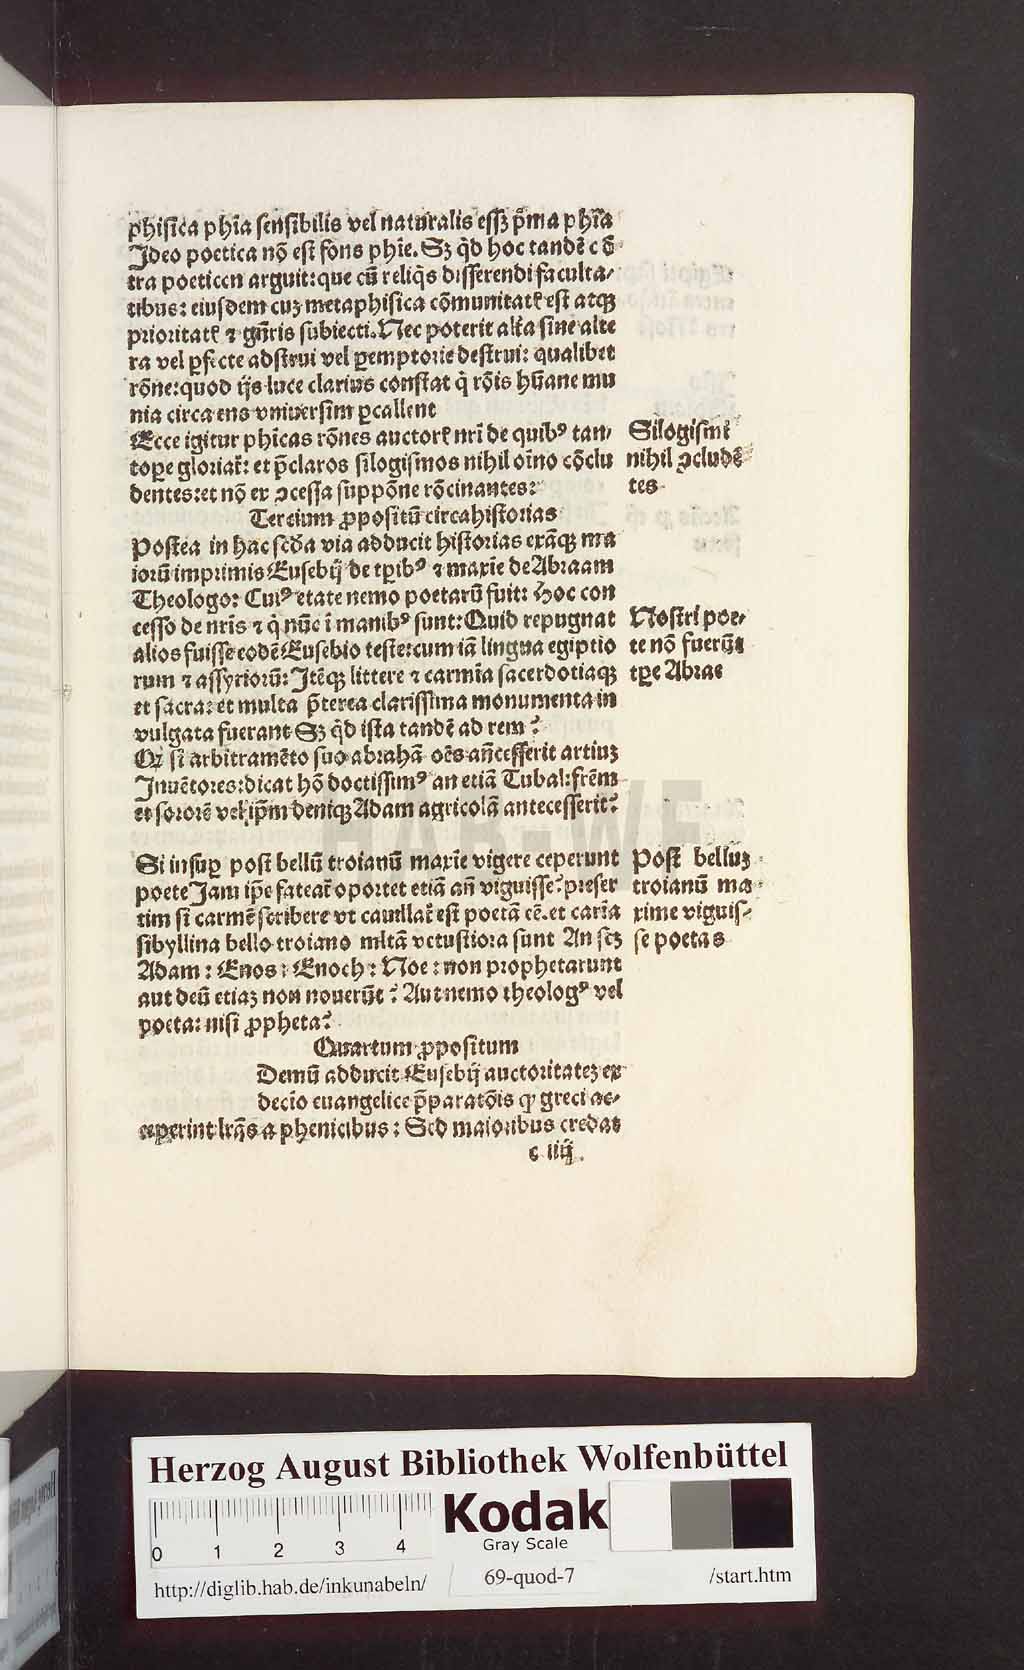 phisica phīa sensibilis vel naturalis essꝫ p̄ma phīa
Ideo poetica nō est fons phīe. Sꝫ qͥd hoc tandē cō
tra poeticen arguit: que cū reliqͥs disserendi faculta⸗
tibus: eiusdem cuꝫ metaphisica cōmunitatꝭ est atqꝫ
prioritatꝭ ⁊ gn̄ris subiecti. Nec poterit alt̄a sine alte
ra vel ꝑfecte adstrui vel ꝑemptorie destrui: qualibet
rōne: quod ijs luce clarius constat q̇ rōis hūane mu
nia circa ens vniuersim ꝑcallent
Ecce igitur phīcas rōnes auctorꝭ nr̄i de quibꝰ tan⸗
toꝑe gloriat᷑: et p̄claros silogismos nihil oīno cōclu
dentes: et nō ex ꝯcessa suppōne rōcinantes:
Silogismi
nihil ꝯcludē
tes
Tercium ꝓpositū circa historias
Postea in hac scd̄a via adducit historias exāqꝫ ma
iorū imprimis Eusebij de tꝑibꝰ ⁊ maxīe de Abraam
Theologo: Cuiꝰ etate nemo poetarū fuit: Hoc con
cesso de nr̄is ⁊ q̇ nūc ī manibꝰ sunt: Quid repugnat
alios fuisse eodē Eusebio teste: cum iā lingua egiptio
rum ⁊ assyriorū: Itēqꝫ littere ⁊ carmīa sacerdotiaqꝫ
et sacra: et multa p̄terea clarissima monumenta in
vulgata fuerant Sꝫ qͥd ista tandē ad rem?
Nostri poe⸗
te nō fuerūt
tꝑe Abrae
Qꝛ si arbitramēto suo abrahā oēs an̄cesserit artiuꝫ
Inuētores: dicat hō doctissimꝰ an etiā Tubal: frēm
et sororē vel ip̄m deniqꝫ Adam agricolā antecesserit?
Si insuꝑ post bellū troianū maxīe vigere ceperunt
poete Jam ip̄e fateat᷑ oportet etiā an̄ viguisse? preser
tim si carmē scribere vt cauillat᷑ est poetā eē. et carīa
sibyllina bello troiano ml̄tā vetustiora sunt An scꝫ
Adam: Enos: Enoch: Noe: non prophetarunt
aut deū etiaꝫ non nouerūt? Aut nemo theologꝰ vel
poeta: nisi ꝓpheta?
Post belluꝫ
troianū ma
xime viguis⸗
se poetas
Quartum ꝓpositum
Demū adducit Eusebij auctoritateꝫ ex
decīo euangelice p̄paratōis ꝙ greci ac⸗
ceperint lr̄as a phenicibus: Sed maioribus credat
c iiij.
HAB-WF
Herzog August Bibliothek Wolfenbüttel
0 1 2 3 4
Kodak
Gray Scale
http://diglib.hab.de/inkunabeln/
69-quod-7
/start.htm